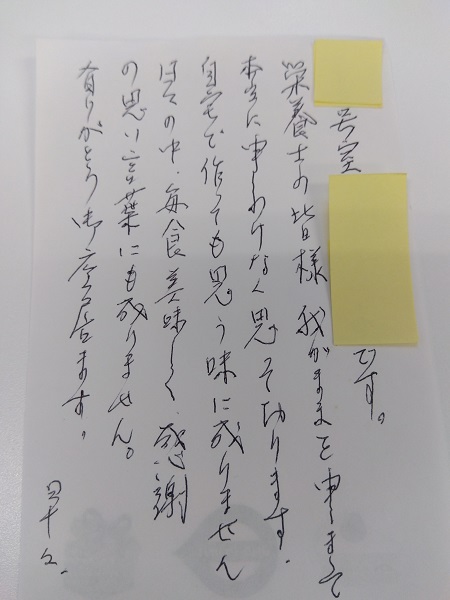 号室 です。
栄養士の皆様 我がままを申しまして
本当に申しわけなく思って切ります.
自宅で作っても思う味に成りません
日々の中、毎食美味しく、感謝
の思い言葉にも成りません。
有りがとう御座居ます。
早々.